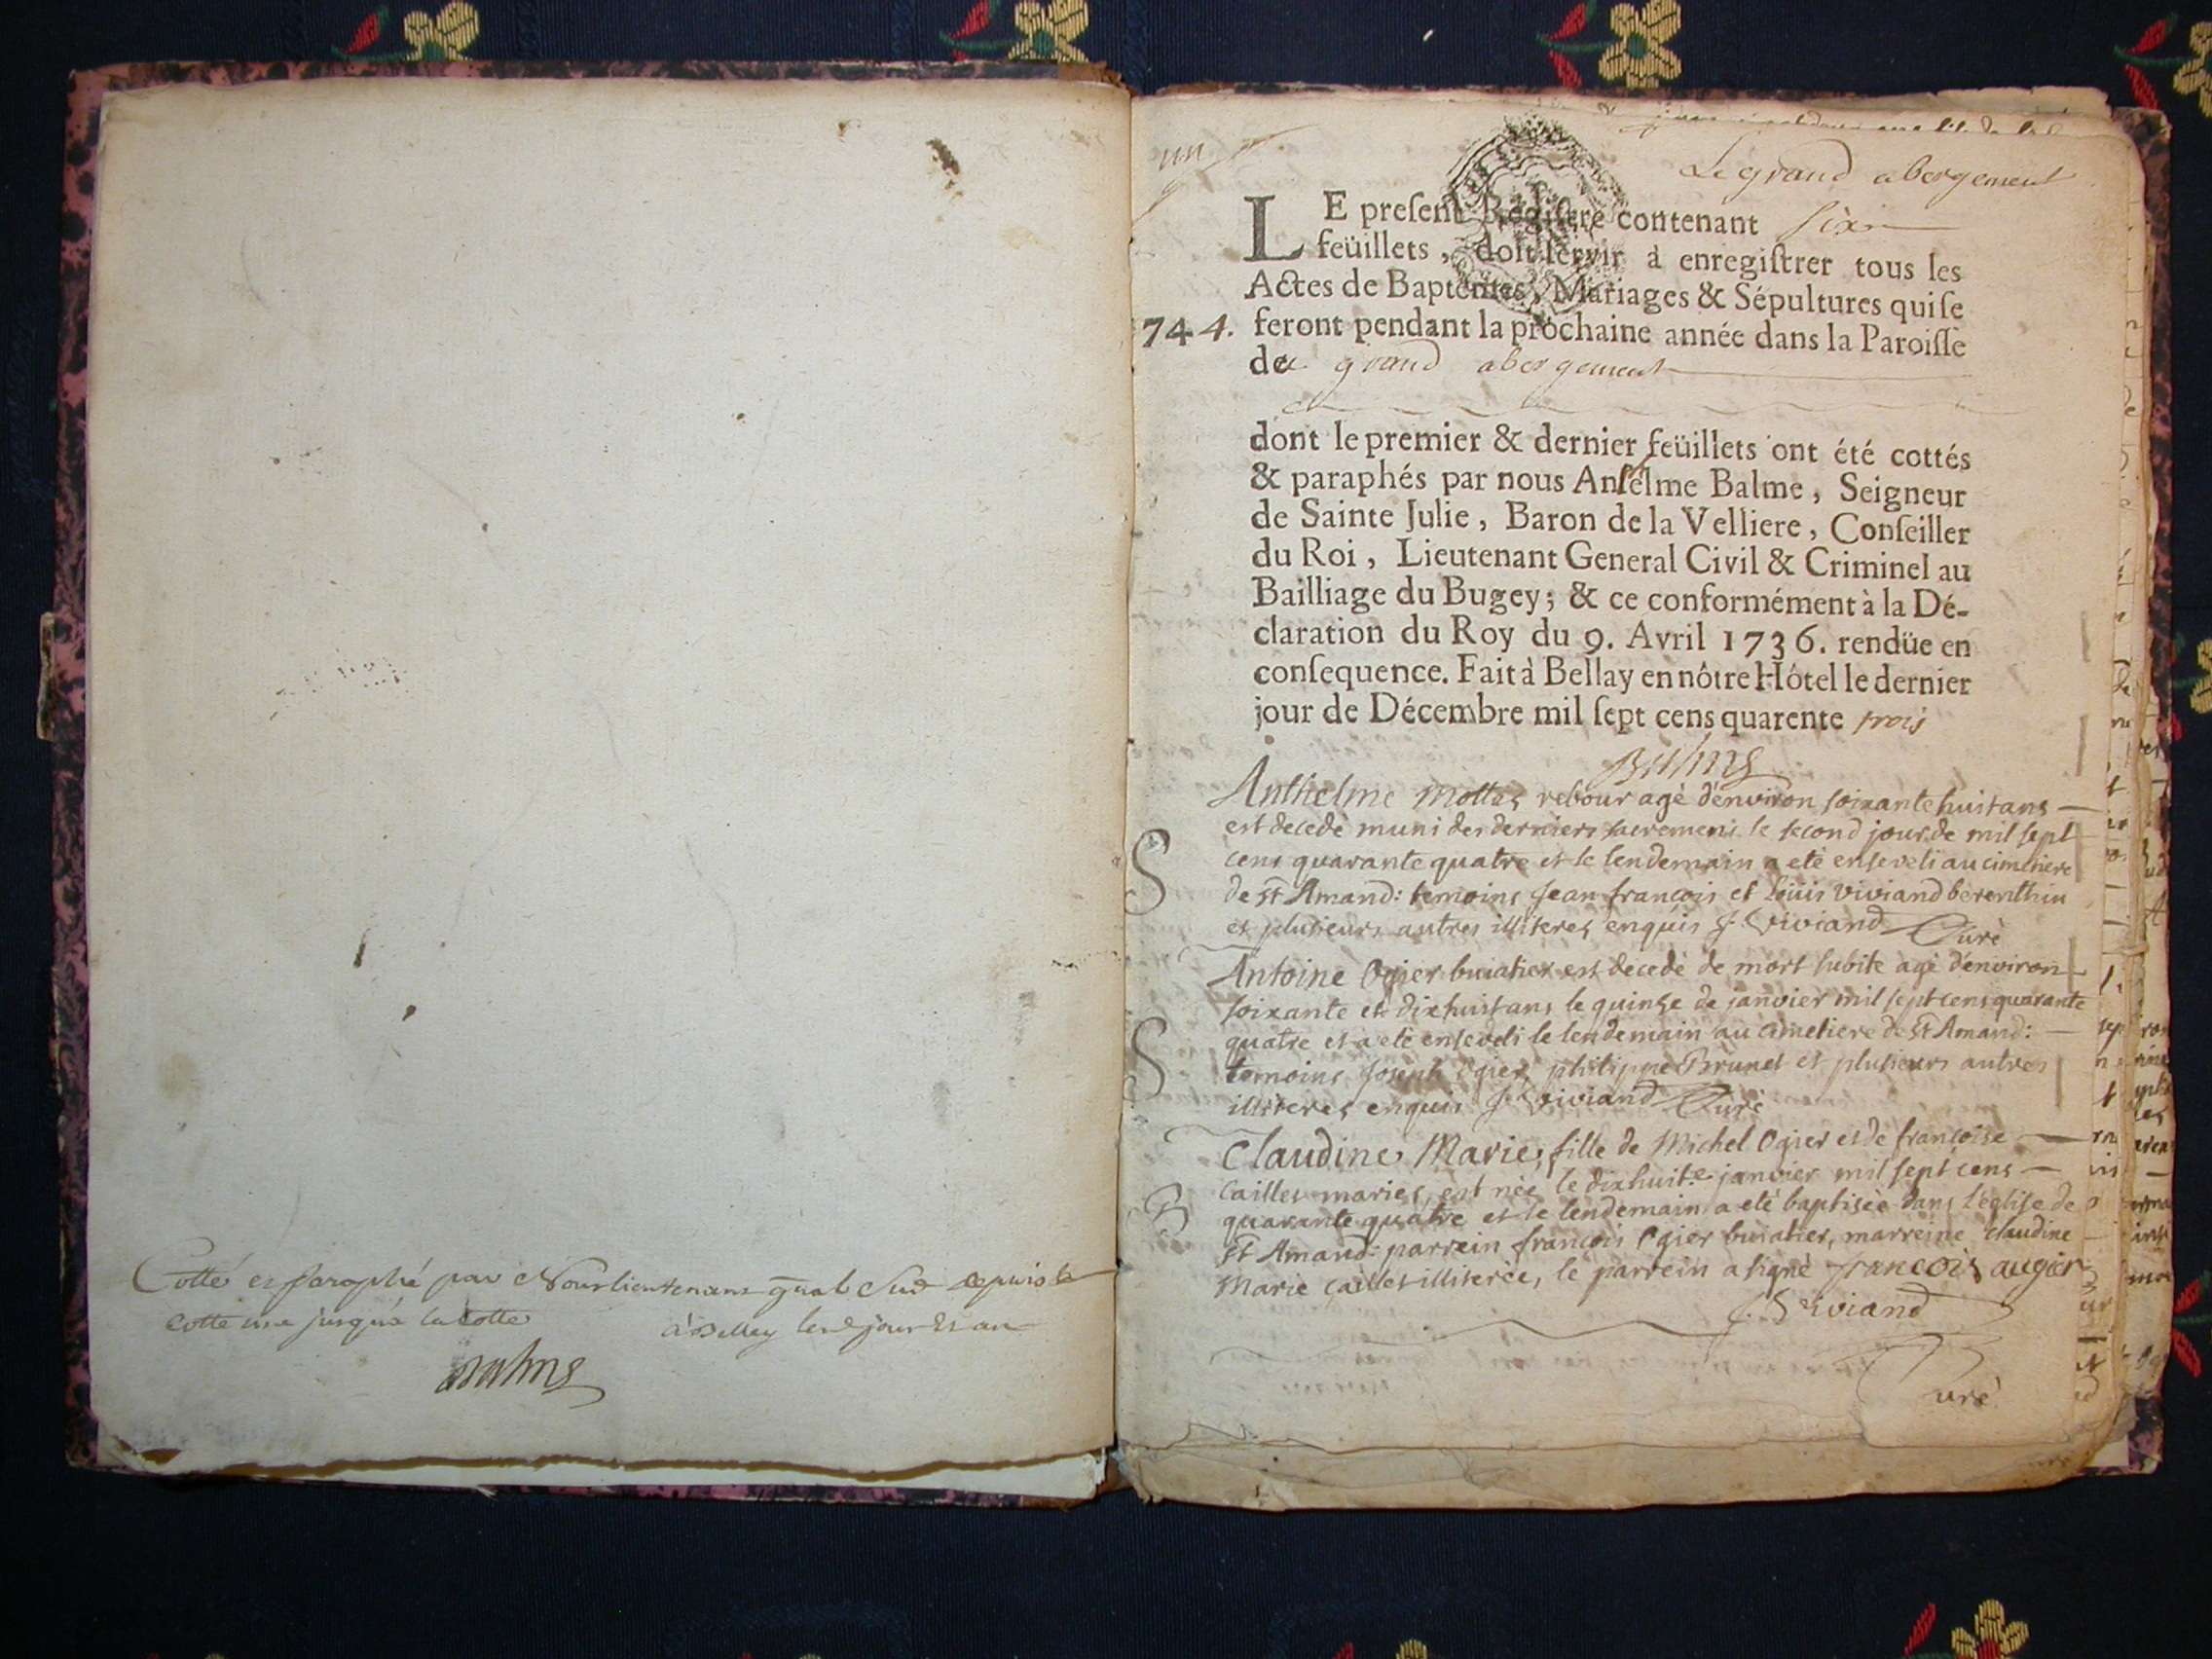 Cotté et paraphé par Nous lieutenant gnal sud depuis la
cotte une jusqu'à la cotte à Belley lesd jour et an
Balme
un
Le grand abergement
LE preſent Regiſtre contenant ſix
feüillets, doit ſervir à enregiſtrer tous les
Actes de Baptêmes, Mariages & Sépultures qui ſe
744. feront pendant la prochaine année dans la Paroiſſe
de grand abergement
dont le premier & dernier feüillets ont été cottés
& paraphés par nous Anſelme Balme, Seigneur
de Sainte Julie, Baron de la Velliere, Conſeiller
du Roi, Lieutenant General Civil & Criminel au
Bailliage du Bugey; & ce conformément à la Dé-
claration du Roy du 9. Avril 1736. rendüe en
conſequence. Fait à Bellay en nôtre Hôtel le dernier
jour de Décembre mil ſept cens quarente trois
Balme
Anthelme Mottet rebour agé d'environ soixante huit ans
est decedé muni des derniers sacremens le second jour de mil sept
S cens quarante quatre et le lendemain a eté enseveli au cimetiere
de st Amand: temoins Jean françois et Loüis Viviand berenthin
et plusieurs autres illiteres enquis J. Viviand Curé
Antoine Ogier buiatier est decedé de mort subite agé d'environ
soixante et dixhuit ans le quinse de janvier mil sept cens quarante
S quatre et a eté enseveli le lendemain au cimetiere de st Amand:
temoins Joseph Ogier, philippe Brunet et plusieurs autres
illiteres enquis J. Viviand Curé
Claudine Marie, fille de Michel Ogier et de françoise
Caillet mariés, est née le dixhuit.e janvier mil sept cens
B quarante quatre et le lendemain a eté baptisée dans l'église de
st Amand: parrein françois Ogier buiatier, marreine Claudine
Marie Caillet illiterée, le parrein a signé francois augier
J. Viviand
Curé